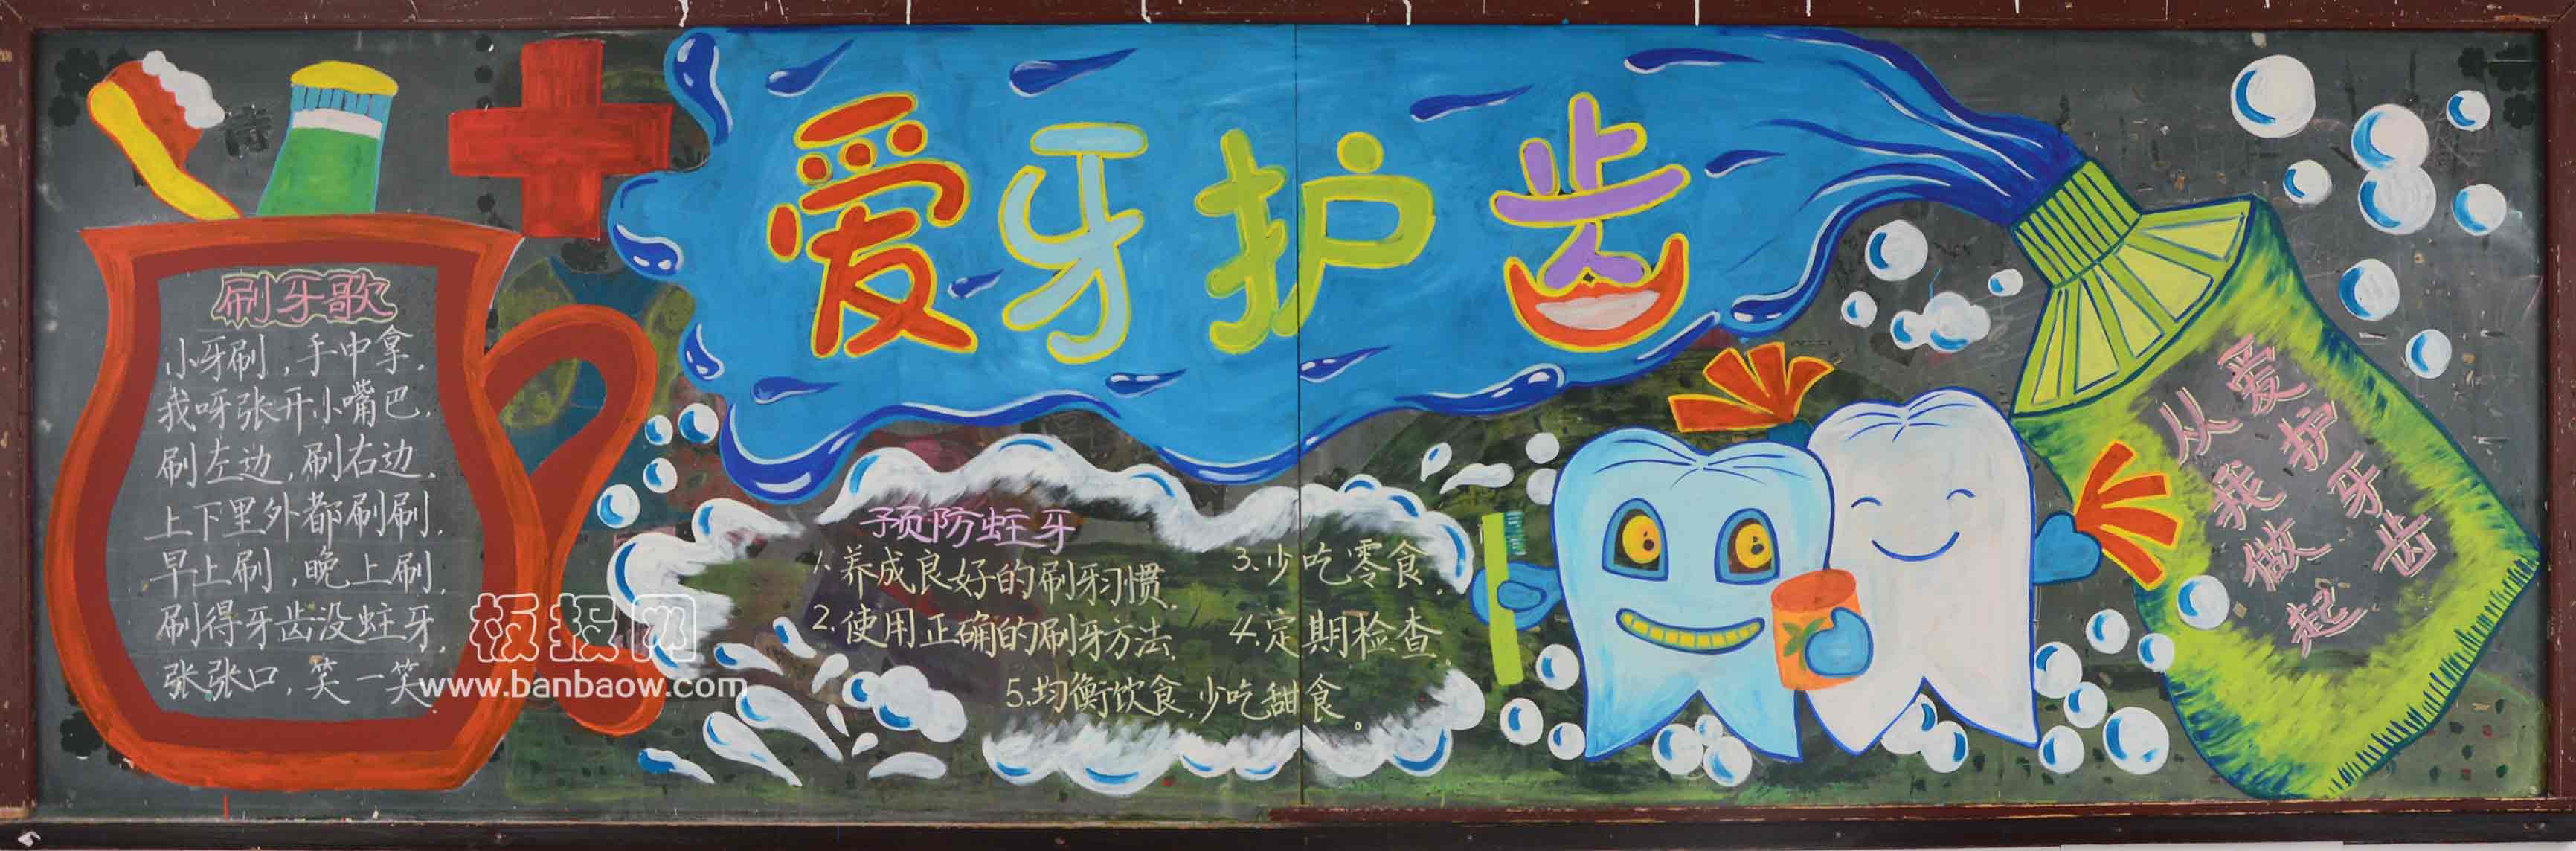 爱牙护齿
刷牙歌
小牙刷,手中拿.
我呀张开小嘴巴.
刷左边,刷右边.
上下里外都刷刷.
早上刷,晚上刷.
刷得牙齿没蛀牙.
张张口,笑一笑.
预防蛀牙
1.养成良好的刷牙习惯.
2.使用正确的刷牙方法.
3.少吃零食.
4.定期检查.
5.均衡饮食,少吃甜食。
爱护牙齿
从我做起
板报网
www.banbaow.com